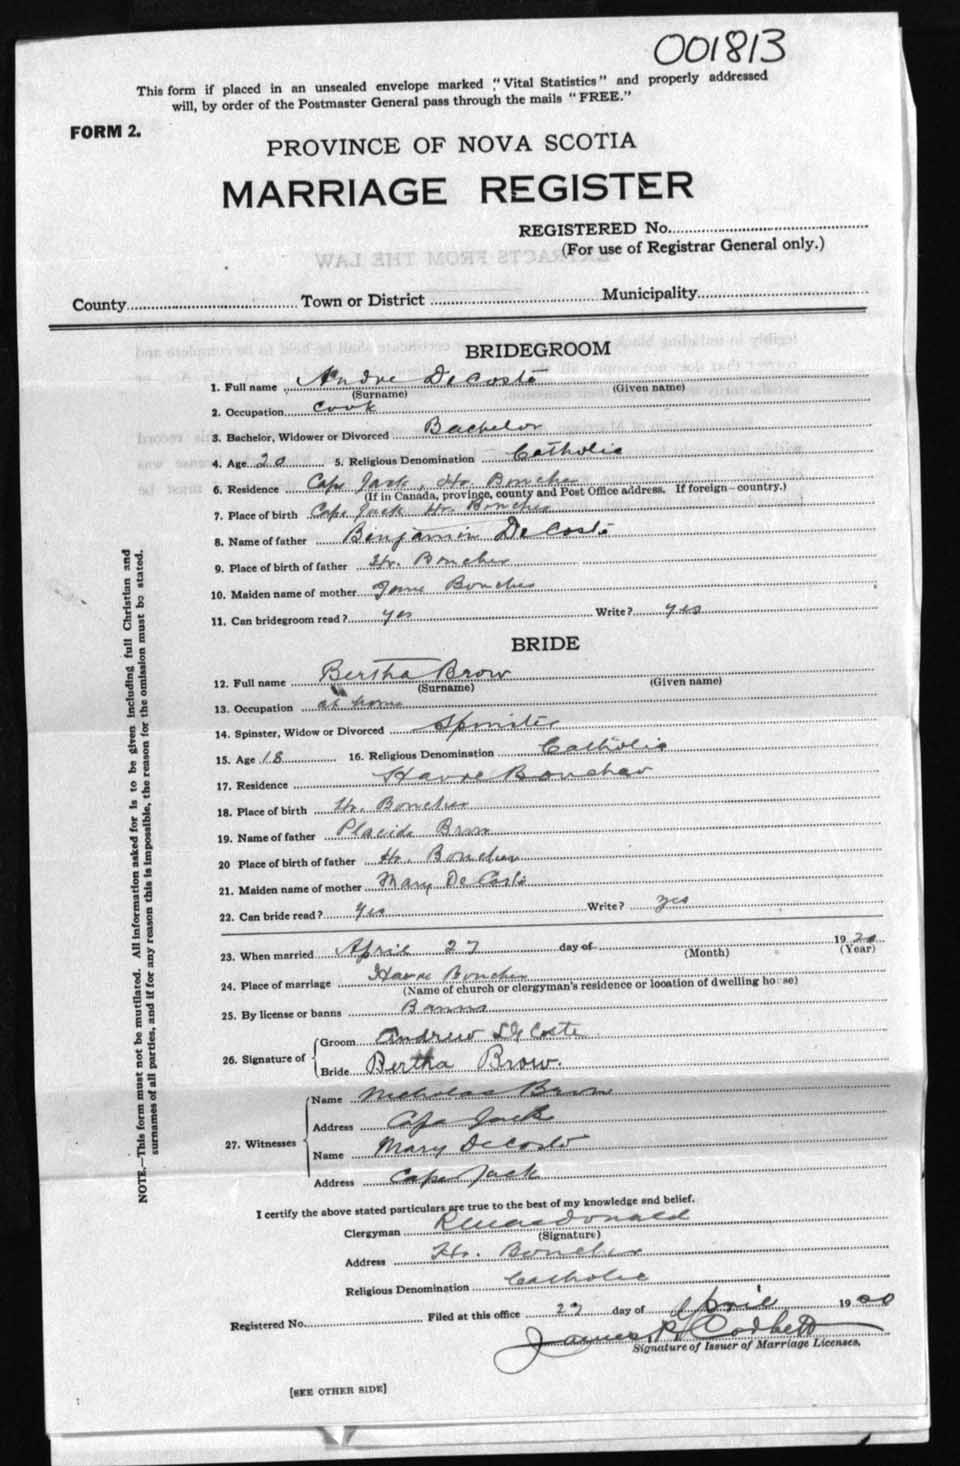 001813
This form if placed in an unsealed envelope marked "Vital Statistics" and properly addressed
will, by order of the Postmaster General pass through the mails "FREE."
FORM 2.
PROVINCE OF NOVA SCOTIA
MARRIAGE REGISTER
REGISTERED No.
(For use of Registrar General only.)
EXTRACTS FROM THE LAW
County Town or District Municipality
BRIDEGROOM
1. Full name Andre DeCoste
(Surname) (Given name)
2. Occupation Cook
3. Bachelor, Widower or Divorced Bachelor
4. Age 20 5. Religious Denomination Catholic
6. Residence Cape Jack, Hr. Boucher
(If in Canada, province, county and Post Office address. If foreign—country.)
7. Place of birth Cape Jack Hr. Boucher
8. Name of father Benjamin DeCoste
9. Place of birth of father Hr. Boucher
10. Maiden name of mother Boucher
11. Can bridegroom read? yes Write? yes
BRIDE
12. Full name Bertha Brow
(Surname) (Given name)
13. Occupation at home
14. Spinster, Widow or Divorced Spinster
15. Age 18 16. Religious Denomination Catholic
17. Residence Havre Boucher
18. Place of birth Hr. Boucher
19. Name of father Placide Brow
20 Place of birth of father Hr. Boucher
21. Maiden name of mother Mary DeCoste
22. Can bride read? Yes Write? yes
23. When married April 27 day of 1920
(Month) (Year)
24. Place of marriage Havre Boucher
(Name of church or clergyman's residence or location of dwelling house)
25. By license or banns Banns
26. Signature of Groom Andrew DeCoste
Bride Bertha Brow.
27. Witnesses Name Nicholas Brow
Address Cape Jack
Name Mary DeCoste
Address Cape Jack
I certify the above stated particulars are true to the best of my knowledge and belief.
Clergyman R MacDonald
(Signature)
Address Hr. Boucher
Religious Denomination Catholic
Registered No. Filed at this office 27 day of April 1920
James R Corbett
Signature of Issuer of Marriage Licenses.
[SEE OTHER SIDE]
NOTE.—This form must not be mutilated. All information asked for is to be given including full Christian and
surnames of all parties, and if for any reason this is impossible, the reason for the omission must be stated.